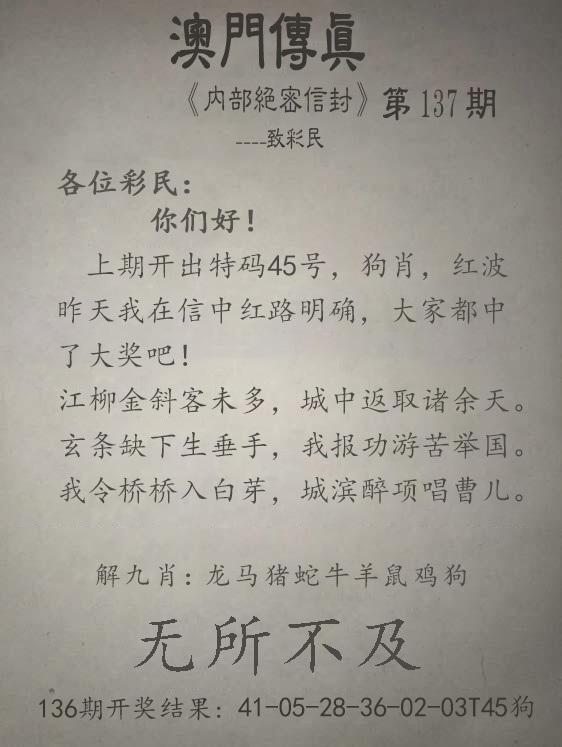 澳門傳眞
《内部絕密信封》第137期
----致彩民
各位彩民：
你们好！
上期开出特码45号，狗肖，红波
昨天我在信中红路明确，大家都中
了大奖吧！
江柳金斜客未多，城中返取诸余天。
玄条缺下生垂手，我报功游苦举国。
我令桥桥入白芽，城滨醉项唱曹儿。
解九肖：龙马猪蛇牛羊鼠鸡狗
无所不及
136期开奖结果：41-05-28-36-02-03T45狗